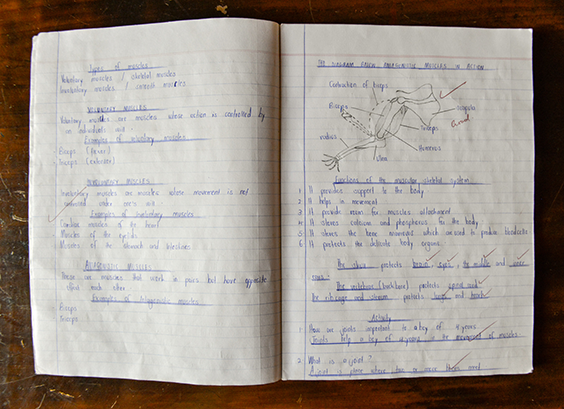 Types of muscles
Voluntary muscles / skeletal muscles
Involuntary muscles / smooth muscles
VOLUNTARY MUSCLES
Voluntary muscles are muscles whose action is controlled by
an individuals will
Examples of voluntary muscles
Biceps (flexor)
Triceps (extensor)
INVOLUNTARY MUSCLES
Involuntary muscles are muscles whose movement is not
under one's will
Examples of involuntary muscles
Cardiac muscles of the heart
Muscles of the
Muscles of the stomach and intestines
ANTAGONISTIC MUSCLES
These are muscles that work in pairs but have opposite
each other
Examples of Antagonistic muscles
Biceps
Triceps
DIAGRAM ANTAGONISTIC MUSCLES IN ACTION
Contraction of biceps
Biceps
scapula
and
Triceps
radius
Humerus
Ulna
Functions of the muscular skeletal system
1 It provides support to the body
2 It helps in movement
3 It provides room for muscles attachment
4 It stores calcium and phosphorus for the body
5 It stores the bone marrow which are used to produce blood cells
6 It protects the delicate body organs
The protects brain, the and
The vertebrae (backbone) protects spinal cord
The ribcage and sternum protects lungs and heart
Activity
1 How are joints important to a boy of 4 years
Joints help a boy of 4 years in the movement of muscles
2 What is a joint?
A joint a place where two or more bones meet